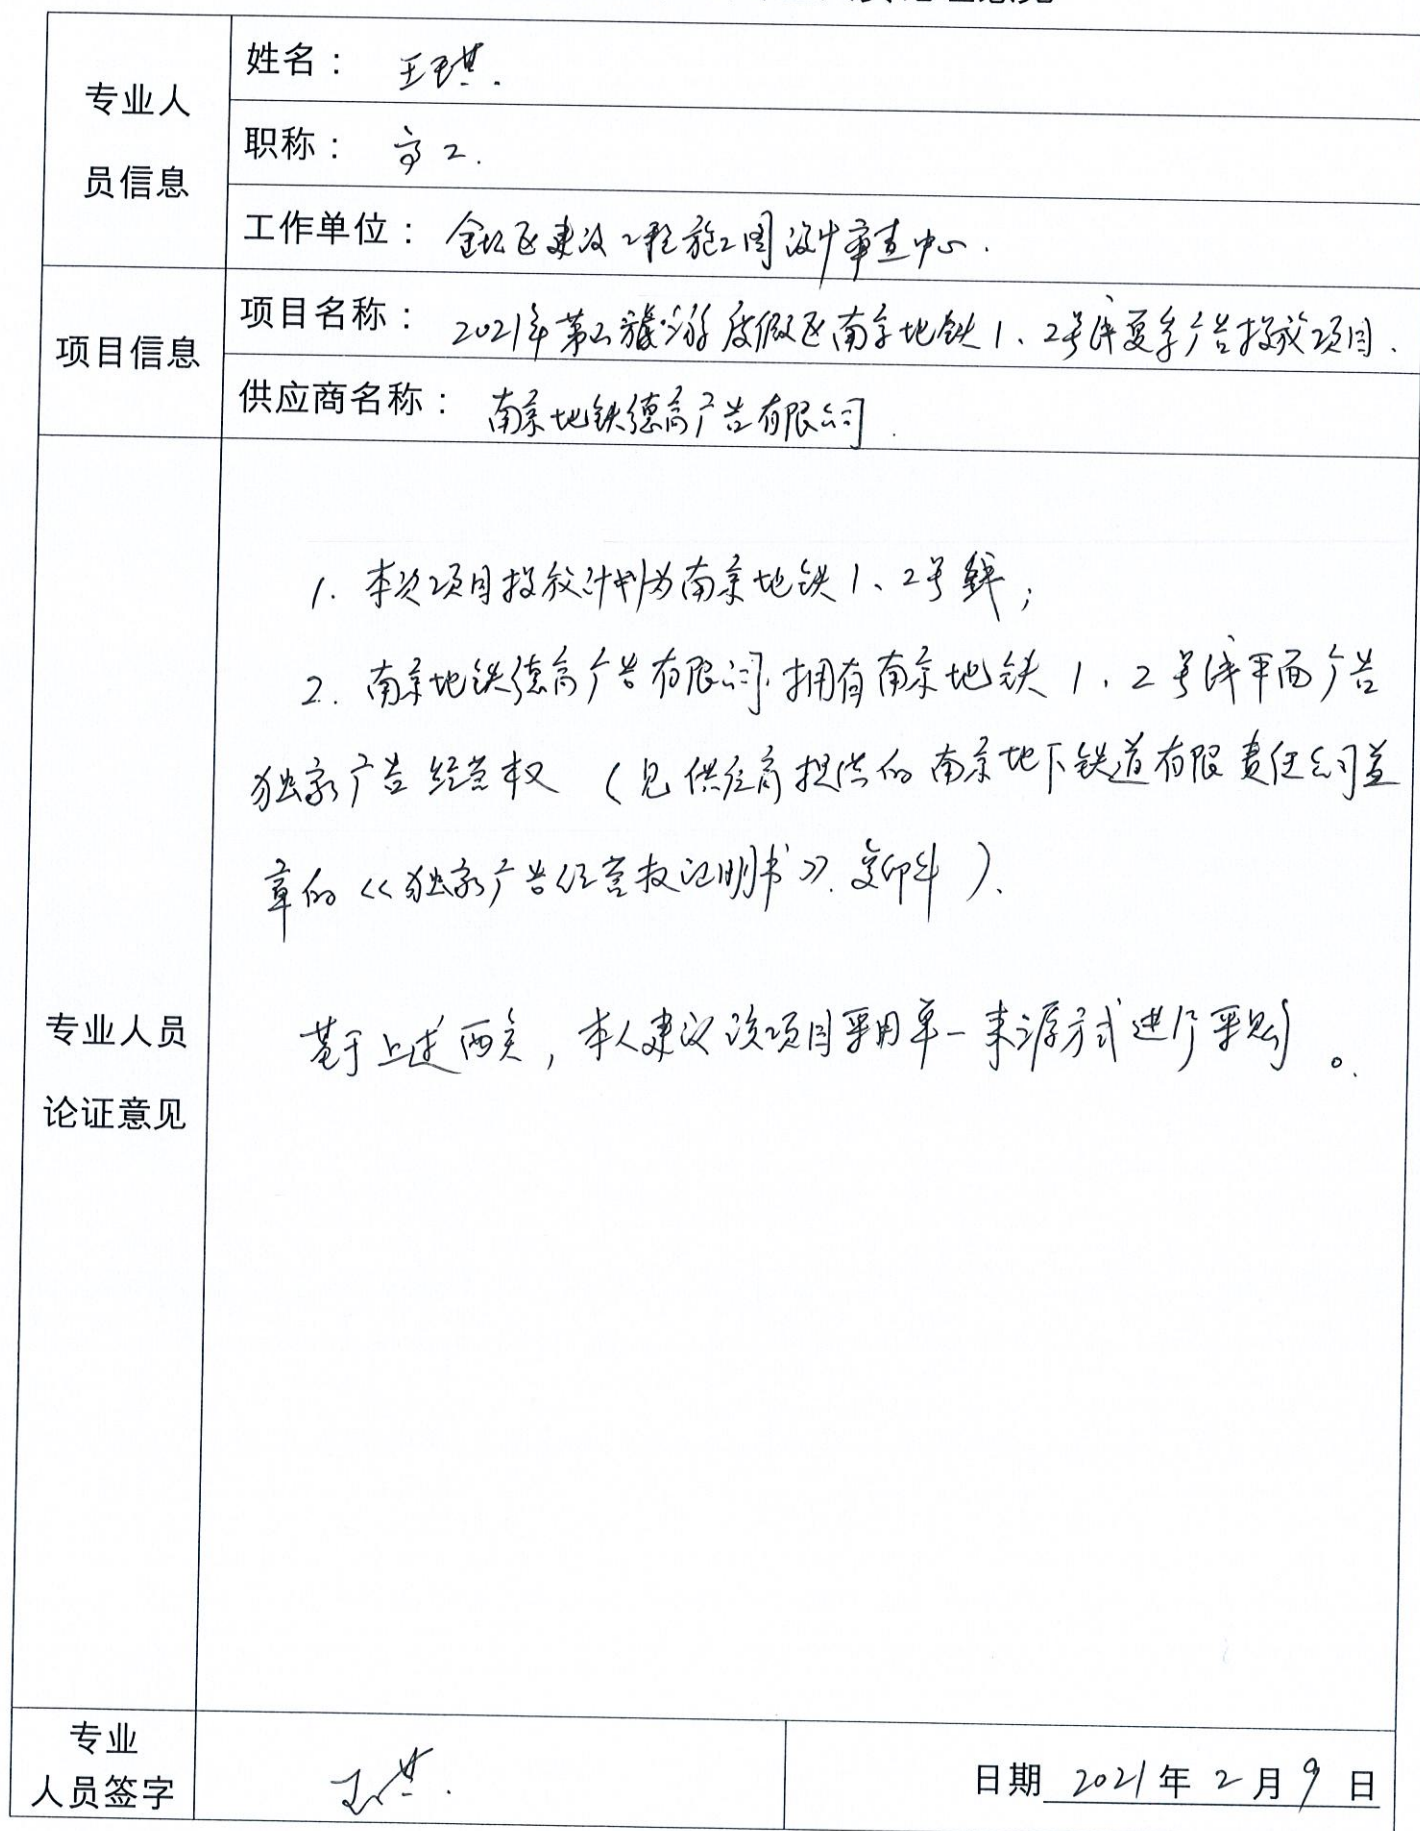 专业人
员信息
姓名： 王琪.
职称： 高工.
工作单位： 金坛区建设工程施工图设计审查中心.
项目信息
项目名称： 2021年茅山旅游度假区南京地铁1、2号线夏季广告投放项目.
供应商名称： 南京地铁德高广告有限公司.
专业人员
论证意见
1. 本次项目投放计划为南京地铁1、2号线；
2. 南京地铁德高广告有限公司拥有南京地铁1、2号线平面广告
独家广告经营权（见供应商提供的南京地下铁道有限责任公司盖
章的《独家广告经营权证明书》复印件）.
基于上述两点，本人建议该项目采用单一来源方式进行采购。
专业
人员签字
王琪.
日期 2021年2月9日